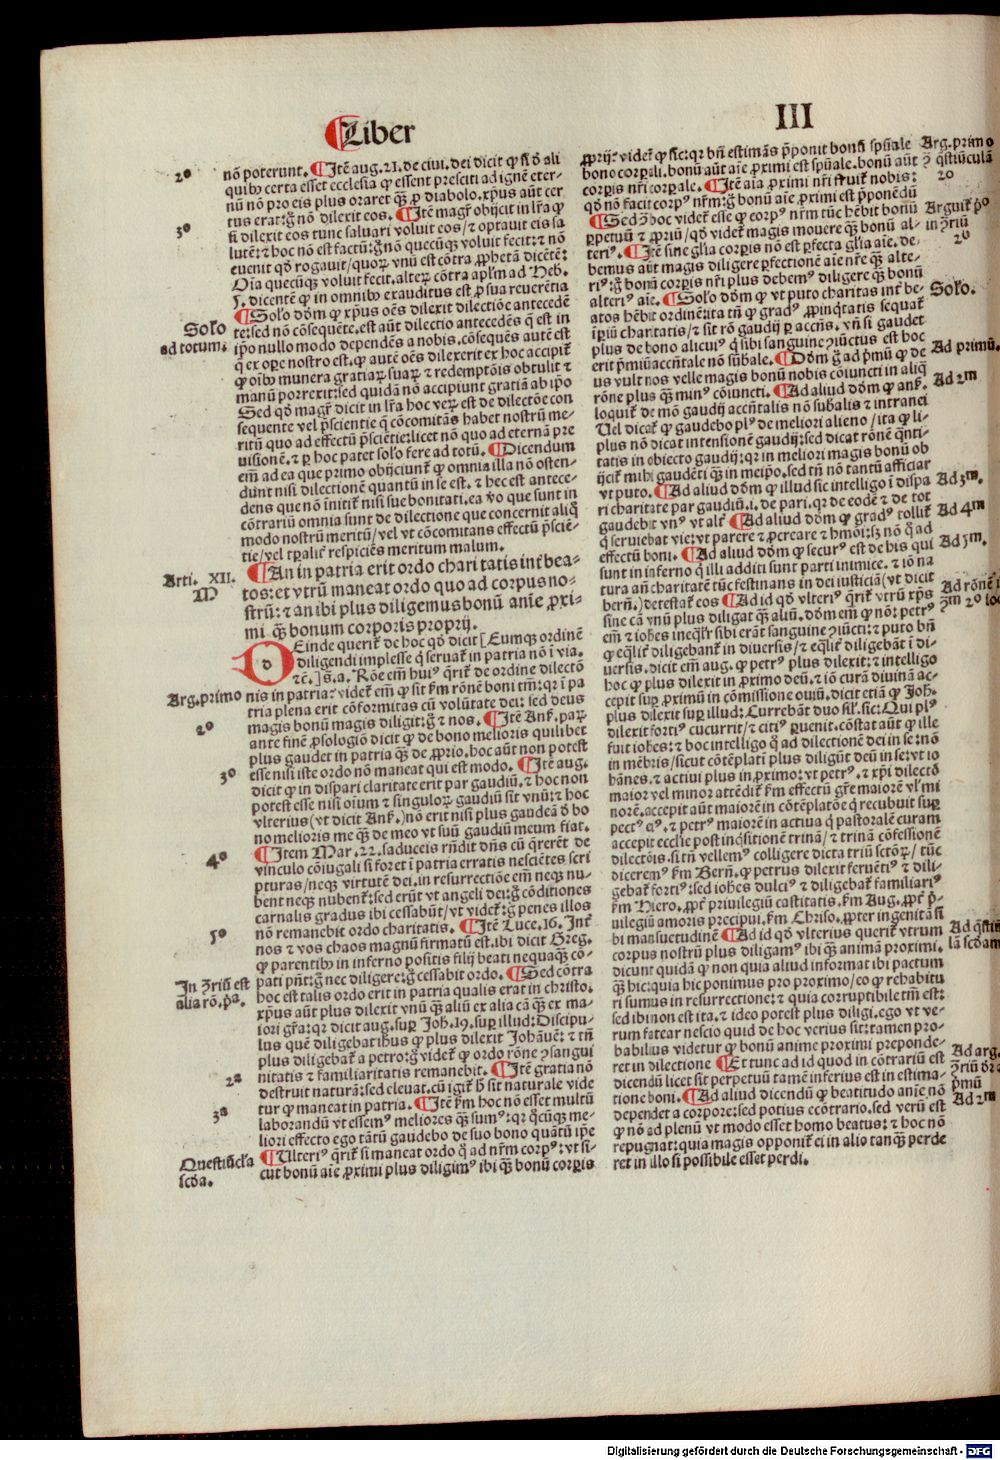 Liber
III
2°
nõ poterunt. ¶ Itẽ aug. 21. de ciui. dei dicit ꝙ si d̃ ali
quibꝰ certa esset ecclesia ꝙ essent presciti ad ignẽ eter-
nũ nõ pro eis plus oraret q̃ꝫ ꝓ diabolo. xp̃us aũt cer
tus erat: g̃ nõ dilexit eos. ¶ Itẽ magr̃ obijcit in lr̃a ꝙ
3°
si dilexit eos tunc saluari voluit eos/ ⁊ optauit eis sa
lutẽ: ⁊ hoc nõ est factũ: g̃ nõ quecũqꝫ voluit fecit: ⁊ nõ
euenit qd̃ rogauit/ quoꝝ vnũ est cõtra ꝓphetã dicẽtẽ:
Oĩa quecũqꝫ voluit fecit. alteꝝ cõtra apl̃m ad Heb.
5. dicentẽ ꝙ in omnibꝰ exauditus est ꝓ sua reuerẽtia
¶ Solo dõm ꝙ xp̃us oẽs dilexit dilectiõe antecedẽ
Solo
ad totum.
te: sed nõ cõsequẽte. est aũt dilectio antecedẽs q̃ est in
ip̃o nullo modo dependẽs a nobis. cõsequẽs autẽ est
q̃ ex oꝑe nostro est. ꝙ autẽ oẽs dilexerit ex hoc accipit̃
ꝙ oĩbꝰ munera gratiaꝝ suaꝝ ⁊ redemptõis obtulit ⁊
manũ porrexit: sed quidã nõ accipiunt gratiã ab ip̃o
Sed qd̃ magr̃ dicit in lr̃a hoc veꝝ est de dilectõe con
sequente vel p̃scientie q̃ cõcomitãs habet nostrũ me-
ritũ quo ad effectũ p̃sciẽtie: licet nõ quo ad eternã pre
uisionẽ. ⁊ ꝑ hoc patet solo fere ad totũ. ¶ Dicendum
em̃ ad ea que primo obijciunt̃ ꝙ omnia illa nõ osten-
dunt nisi dilectionem quantũ in se est. ⁊ hec est antece-
dens que nõ ĩnitit̃ nisi sue bonitati. ea ṽo que sunt in
cõtrariũ omnia sunt de dilectione que concernit aliq̃
modo nostrũ meritũ/ vel vt cõcomitans effectũ p̃sciẽ-
tie/ vel tꝑalit̃ respiciẽs meritum malum.
Arti. XII.
¶ An in patria erit ordo charitatis int̃ bea-
tos: et vtrũ maneat ordo quo ad corpus no-
strũ: ⁊ an ibi plus diligemus bonũ anĩe ꝓxi-
mi q̃ꝫ bonum corporis proprij.
DEinde querit̃ de hoc qd̃ dicit [Eumqꝫ ordinẽ
diligendi implesse q̃ seruat̃ in patria nõ ĩ via.
⁊c̃.] s. a. Rõe em̃ huiꝰ q̃rit̃ de ordine dilectõ
Arg. primo
nis in patria: videt̃ em̃ ꝙ sit km̃ rõnẽ boni tm̃: qr ĩ pa
tria plena erit cõformitas cũ volũtate dei: sed deus
magis bonũ magis diligit: g̃ ⁊ nos. ¶ Itẽ Anf. paꝝ
2°
ante finẽ ꝓsologiõ dicit ꝙ de bono melioris quilibet
plus gaudet in patria q̃ꝫ de ꝓprio. hoc aũt non potest
esse nisi iste ordo nõ maneat qui est modo. ¶ Itẽ aug.
3°
dicit ꝙ in dispari claritate erit par gaudiũ. ⁊ hoc non
potest esse nisi oĩum ⁊ singuloꝝ gaudiũ sit vnũ: ⁊ hoc
vlterius (vt dicit Anf.) nõ erit nisi plus gaudeã d̃ bo
no melioris me q̃ꝫ de meo vt suũ gaudiũ meum fiat.
4°
¶ Item Mar. 22. saduceis rñdit dñs cũ q̃reret̃ de
vinculo cõiugali si foret ĩ patria erratis nesciẽtes scri
pturas/ neqꝫ virtutẽ dei. in resurrectiõe em̃ neqꝫ nu-
bent neqꝫ nubent̃: sed erũt vt angeli dei: g̃ cõditiones
carnalis gradus ibi cessabũt/ vt videt̃: g̃ penes illos
nõ remanebit ordo charitatis. ¶ Itẽ Luce. 16. Int̃
5°
nos ⁊ vos chaos magnũ firmatũ est. ibi dicit Greg.
ꝙ parentibꝰ in inferno positis filij beati nequaqꝫ cõ-
In ꝯriũ est
alia rõ. p̃a.
pati pñt: g̃ nec diligere: g̃ cessabit ordo. ¶ Sed cõtra
hoc est talis ordo erit in patria qualis erat in christo.
xp̃us aũt plus dilexit vnũ q̃ꝫ aliũ ex alia cã q̃ꝫ ex ma-
iori gr̃a: qr dicit aug. suꝑ Joh. 19. suꝑ illud: Discipu-
lus quẽ diligebat Ihesus ꝙ plus dilexit Johãnẽ: ⁊ tñ
plus diligebat̃ a petro: g̃ videt̃ ꝙ ordo rõne ꝯsangui
nitatis ⁊ familiaritatis remanebit. ¶ Itẽ gratia nõ
2ª
destruit naturã: sed eleuat. cũ igit̃ h̃ sit naturale vide
tur ꝙ maneat in patria. ¶ Itẽ km̃ hoc nõ esset multũ
3ª
laborandũ vt essemꝰ meliores q̃ꝫ sumꝰ: qr q̃cũqꝫ me-
liori effecto ego tãtũ gaudebo de suo bono quãtũ ip̃e
Questiũcl̃a
scd̃a.
¶ Vlteriꝰ q̃rit̃ si maneat ordo q̃ ad nr̃m corpꝰ: vt si-
cut bonũ aĩe ꝓximi plus diligimꝰ ibi q̃ꝫ bonũ corꝑis
ꝓprij: videt̃ ꝙ sic: qr bñ estimãs p̃ponit bonũ sp̃uale
bono corꝑali. bonũ aũt aĩe ꝓximi est sp̃uale. bonũ aũt
Arg. primo
ꝯ q̃stiũculã
2°
corꝑis nr̃i corꝑale. ¶ Itẽ aĩa ꝓximi nr̃i fruit̃ nobis:
qd̃ nõ facit corpꝰ nr̃m: g̃ bonũ aĩe ꝓximi est p̃ponẽdũ
¶ Sed ꝯ̃ hoc videt̃ esse ꝙ corpꝰ nr̃m tũc hẽbit bonũ
Arguit̃ p°
in ꝯriũ
ꝑpetuũ ⁊ ꝓpriũ/ qd̃ videt̃ magis mouere q̃ꝫ bonũ al-
teriꝰ. ¶ Itẽ sine gl̃ia corꝑis nõ est ꝑfecta gl̃ia aĩe. de-
2°
bemus aũt magis diligere ꝑfectionẽ aĩe nr̃e q̃ꝫ alte-
riꝰ: g̃ bonũ corꝑis nr̃i plus debemꝰ diligere q̃ꝫ bonũ
alteriꝰ aĩe. ¶ Solo dõm ꝙ vt puto charitas int̃ be-
Solo.
atos hẽbit ordinẽ: ita tñ ꝙ gradꝰ ꝓpinq̃tatis sequat̃
ip̃iũ charitatis/ ⁊ sit rõ gaudij ꝑ accñs. vñ si gaudet
plus de bono alicuiꝰ q̃ sibi sanguine ꝯiũctus est hoc
erit p̃miũ accñtale nõ sũbale. ¶ Dõm g̃ ad p̃mũ ꝙ de
Ad primũ.
us vult nos velle magis bonũ nobis cõiuncti in aliq̃
rõne plus q̃ꝫ minꝰ cõiuncti. ¶ Ad aliud dõm ꝙ anf.
Ad 2m
loquit̃ de mõ gaudij accñtalis nõ sũbalis ⁊ intranei
Vel dicat̃ ꝙ gaudebo plꝰ de meliori alieno/ ita ꝙ li-
plus nõ dicat intensionẽ gaudij: sed dicat rõnẽ q̃nti-
tatis in obiecto gaudij: qr in meliori magis bonũ ob
ijcit̃ mihi gaudẽti q̃ꝫ in meip̃o. sed tñ nõ tantũ afficiar
vt puto. ¶ Ad aliud dõm ꝙ illud sic intelligo ĩ dispa
Ad 3m.
ri charitate par gaudiũ. i. de pari. qr de eodẽ ⁊ de tot
gaudebit vnꝰ vt alt̃ ¶ Ad aliud dõm ꝙ gradꝰ tollit̃
Ad 4m
q̃ seruiebat vie: vt parere ⁊ ꝓcreare ⁊ hmõi: sꝫ nõ q̃ ad
effectũ boni. ¶ Ad aliud dõm ꝙ securꝰ est de his qui
Ad 5m.
sunt in inferno q̃ illi additi sunt parti inimice. ⁊ iõ na
tura añ charitatẽ tũc festinans in dei iusticiã (vt dicit
bern.) detestat̃ eos ¶ Ad id qd̃ vlteriꝰ q̃rit̃ vtrũ xp̃s
sine cã vnũ plus diligat q̃ꝫ aliũ. dõm em̃ ꝙ nõ: petrꝰ
em̃ ⁊ iohẽs ineq̃lit̃ sibi erãt sanguine ꝯiũcti: ⁊ puto bñ
ꝙ eq̃lit̃ diligebant̃ in diuersis/ ⁊ eq̃lit̃ diligebãt ĩ di-
uersis. dicit em̃ aug. ꝙ petrꝰ plus dilexit: ⁊ intelligo
hoc ꝙ plus dilexit in ꝓximo deũ. ⁊ iõ curã diuinã ac-
cepit suꝑ ꝓximũ in cõmissione ouiũ. dicit etiã ꝙ Joh.
plus dilexit suꝑ illud: Currebãt duo sil̃. sic: Qui plꝰ
dilexit fortiꝰ cucurrit/ ⁊ citiꝰ ꝑuenit. cõstat aũt ꝙ ille
fuit iohẽs: ⁊ hoc intelligo q̃ ad dilectionẽ dei in se: nõ
in mẽbris/ sicut cõtẽplati plus diligũt deũ in se: vt io
hãnes. ⁊ actiui plus in ꝓximo: vt petrꝰ. ⁊ xp̃i dilectõ
maior vel minor attẽdit̃ km̃ effectũ gr̃e maiorẽ vl̃ mi
norẽ. accepit aũt maiorẽ in cõtẽplatõe q̃ recubuit suꝑ
pectꝰ eiꝰ. ⁊ petrꝰ maiorẽ in actiua q̃ pastoralẽ curam
accepit eccl̃ie post inq̃sitionẽ trinã/ ⁊ trinã cõfessionẽ
dilectõis. si tñ vellemꝰ colligere dicta triũ sctõꝝ/ tũc
dicerem̃ km̃ Bern. ꝙ petrus dilexit feruẽtiꝰ ⁊ dili-
gebat̃ fortiꝰ: sed iohẽs dulciꝰ ⁊ diligebat̃ familiariꝰ
km̃ Hiero. ꝓpt̃ priuilegiũ castitatis. km̃ Aug. ꝓpt̃ p̃-
uilegiũ amoris precipui. km̃ Chriso. ꝓpter ingenitã si
bi mansuetudinẽ ¶ Ad id qd̃ vlterius querit̃ vtrum
corpus nostrũ plus diligamꝰ ibi q̃ꝫ animã proximi.
dicunt quidã ꝙ non quia aliud informat ibi pactum
q̃ꝫ hic: quia hic ponimus pro proximo/ eo ꝙ rehabitu
ri sumus in resurrectione: ⁊ quia corruptibile tm̃ est:
sed ibi non est ita. ⁊ ideo potest plus diligi. ego vt ve-
rum fatear nescio quid de hoc verius sit: tamen pro-
babilius videtur ꝙ bonũ anime proximi preponde-
ret in dilectione ¶ Et tunc ad id quod in cõtrariũ est
dicendũ licet sit perpetuũ tamẽ inferius est in estima-
tione boni. ¶ Ad aliud dicendũ ꝙ beatitudo anĩe nõ
Ad 2m
dependet a corpore: sed potius ecõtrario. sed verũ est
ꝙ nõ ad plenũ vt modo esset homo beatus: ⁊ hoc nõ
repugnat: quia magis opponit̃ ei in alio tanq̃ꝫ perde
ret in illo si possibile esset perdi.
Digitalisierung gefördert durch die Deutsche Forschungsgemeinschaft - DFG